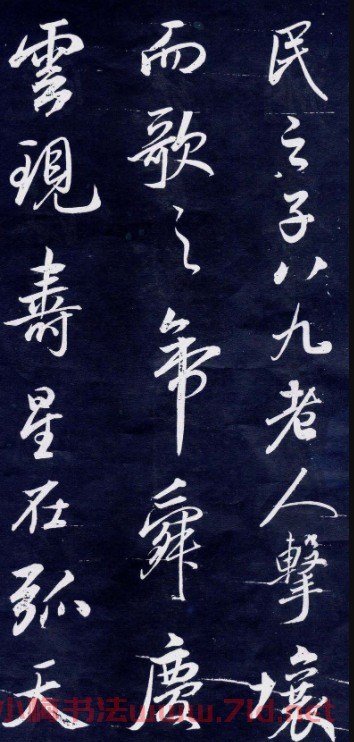 民之子八九老人擊壤
而歌之帝舜慶
雲現壽星在弧天
小梅书法www.71d.net